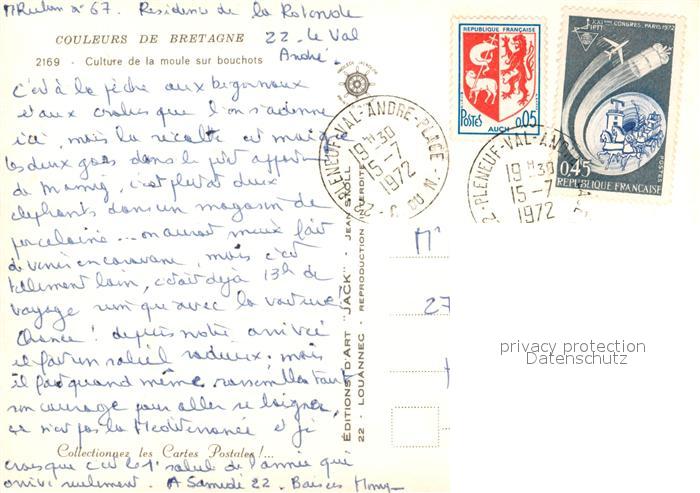 67. Residence de la Rotonde
22 - Le Val
André.
COULEURS DE BRETAGNE
2169 - Culture de la moule sur bouchots
c'est à la pêche aux bigorneaux
et aux crabes que l'on s'adonne
ici, mais la récolte est maigre
les deux gars dans le petit appart
de Mamig, c'est plutôt deux
elephants dans un magasin de
porcelaine... on aurait mieux fait
de venir en caravane, mais c'est
tellement loin, c'était déjà 13h de
voyage rien que avec la voiture
Chance! depuis notre arrivée
il fait un soleil radieux. mais
il faut quand même rassembler tout
son courage pour aller se baigner,
ce n'est pas la Méditerranée et je
Collectionnez les Cartes Postales !...
crois que c'est le 1er soleil de l'année qui
arrive seulement. A Samedi 22. Baisers
EDITIONS D'ART "JACK" - JEAN STOLL
22 - LOUANNEC - REPRODUCTION INTERDITE
REPUBLIQUE FRANÇAISE
POSTES 0,05
AUCH
XXIème CONGRES. PARIS 1972
IPTT
0,45
POSTES
REPUBLIQUE FRANÇAISE
22 PLENEUF-VAL-ANDRE-PLAGE
19H30
15-7
1972
C. DU N.
22-PLENEUF-VAL-ANDRE PLAGE
19H30
15-7
1972
M
27
privacy protection
Datenschutz